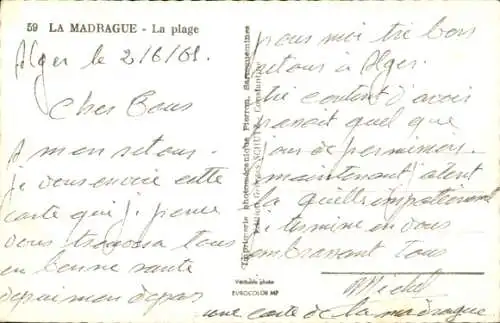 59 LA MADRAGUE - La plage
Alger le 2/6/61.
Cher Tous
A mon retour
je vous envoie cette
carte qui je pense
vous trouvera tous
en bonne santé
depuis mon départ
pour moi très bon
retour à Alger.
très content d'avoir
passait quel que
jour de permission
maintenant j'atent
la quille impatiemment
je termine en vous
embrassant tous
Michel
une carte de la madrague
Imprimerie photomécanique Pierron, Sarreguemines
Edition Georges SCHULTZ, Constantine
Véritable photo
EUROCOLOR MP